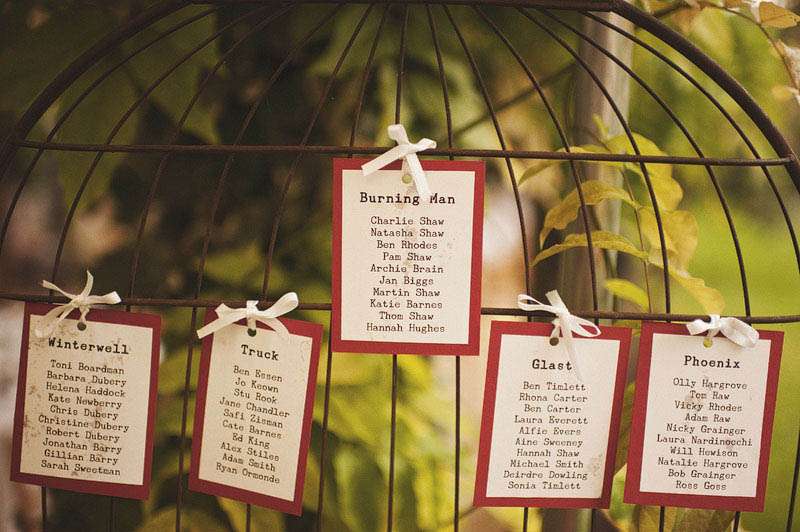 Burning Man
Charlie Shaw
Natasha Shaw
Ben Rhodes
Pam Shaw
Archie Brain
Jan Biggs
Martin Shaw
Katie Barnes
Thom Shaw
Hannah Hughes
Winterwell
Toni Boardman
Barbara Dubery
Helena Haddock
Kate Newberry
Chris Dubery
Christine Dubery
Robert Dubery
Jonathan Barry
Gillian Barry
Sarah Sweetman
Truck
Ben Essen
Jo Keown
Stu Rook
Jane Chandler
Safi Zisman
Cate Barnes
Ed King
Alex Stiles
Adam Smith
Ryan Ormonde
Glast
Ben Timlett
Rhona Carter
Ben Carter
Laura Everett
Alfie Evers
Aine Sweeney
Hannah Shaw
Michael Smith
Deirdre Dowling
Sonia Timlett
Phoenix
Olly Hargrove
Tom Raw
Vicky Rhodes
Adam Raw
Nicky Grainger
Laura Nardinocchi
Will Hewison
Natalie Hargrove
Bob Grainger
Ross Goss